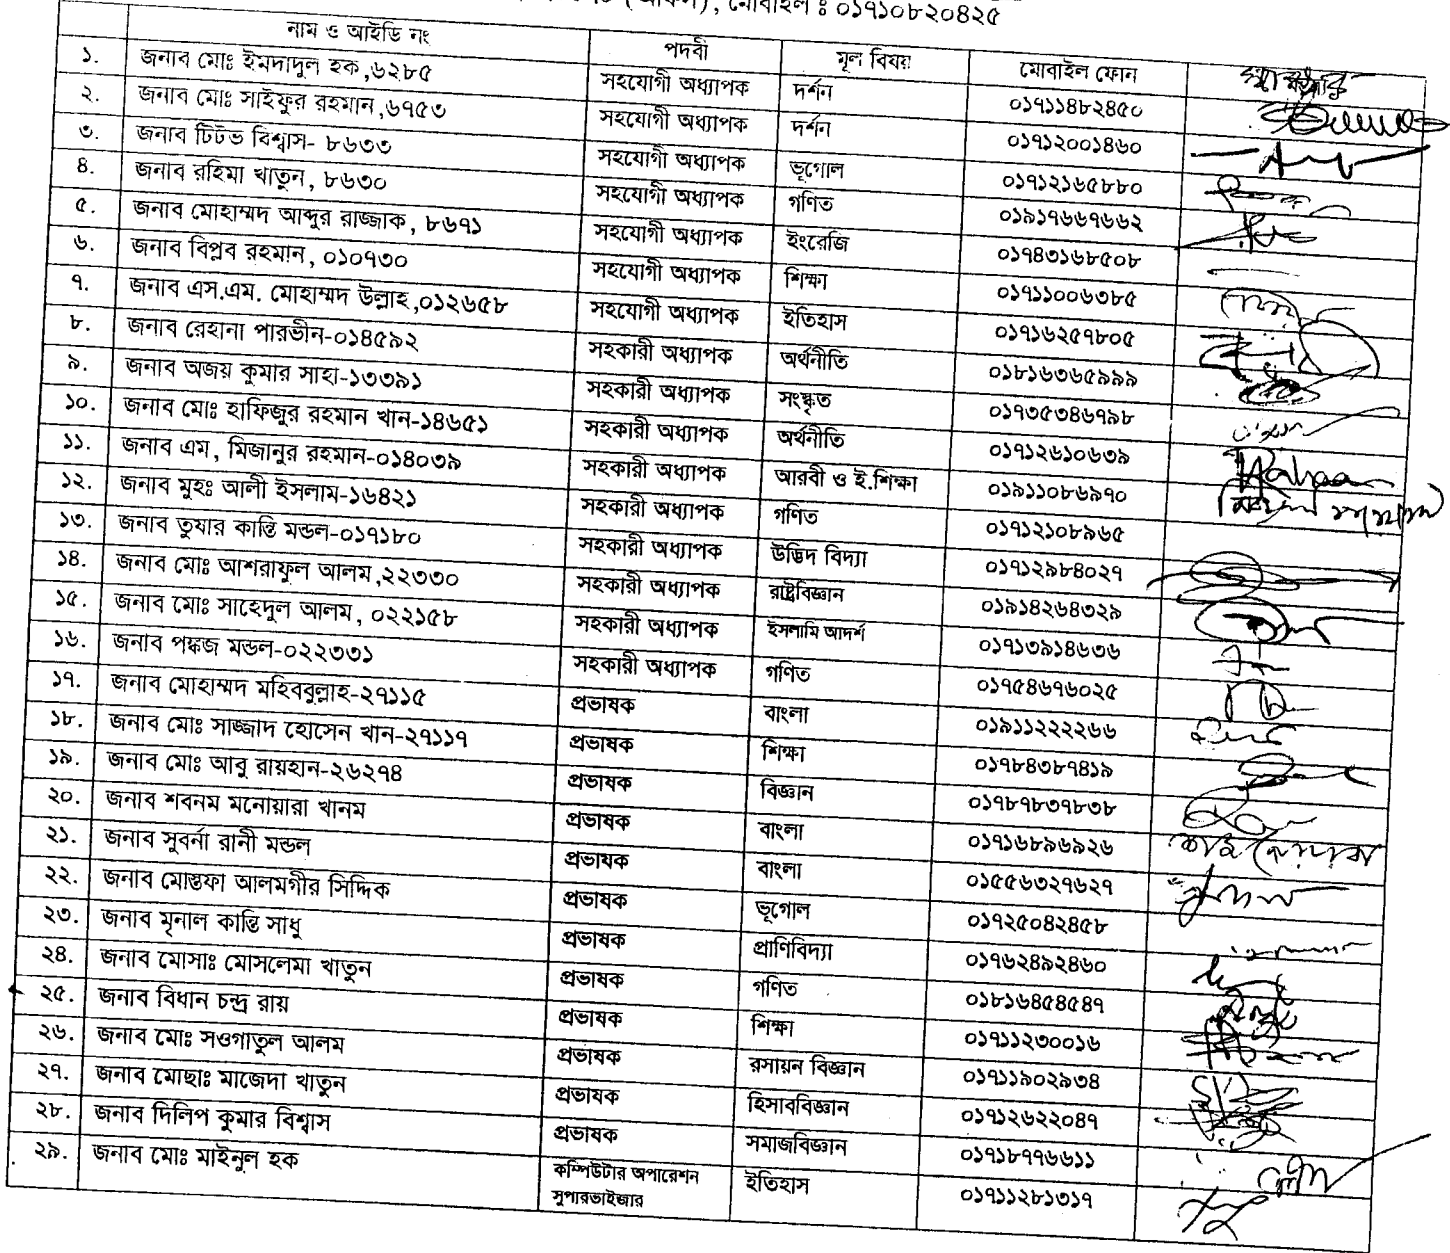 মোবাইল ঃ ০১৭১০৮২০৪২৫
নাম ও আইডি নং পদবী মূল বিষয় মোবাইল ফোন
১. জনাব মোঃ ইমদাদুল হক,৬২৮৫ সহযোগী অধ্যাপক দর্শন ০১৭১১৪৮২৪৫০
২. জনাব মোঃ সাইফুর রহমান,৬৭৫৩ সহযোগী অধ্যাপক দর্শন ০১৭১২০০১৪৬০
৩. জনাব টিটভ বিশ্বাস- ৮৬৩৩ সহযোগী অধ্যাপক ভূগোল ০১৭১২১৬৫৮৮০
৪. জনাব রহিমা খাতুন, ৮৬৩০ সহযোগী অধ্যাপক গণিত ০১৯১৭৬৬৭৬৬২
৫. জনাব মোহাম্মদ আব্দুর রাজ্জাক, ৮৬৭১ সহযোগী অধ্যাপক ইংরেজি ০১৭৪৩১৬৮৫০৮
৬. জনাব বিপ্লব রহমান, ০১০৭৩০ সহযোগী অধ্যাপক শিক্ষা ০১৭১১০০৬৩৮৫
৭. জনাব এস.এম. মোহাম্মদ উল্লাহ,০১২৬৫৮ সহযোগী অধ্যাপক ইতিহাস ০১৭১৬২৫৭৮০৫
৮. জনাব রেহানা পারভীন-০১৪৫৯২ সহকারী অধ্যাপক অর্থনীতি ০১৮১৬৩৬৫৯৯৯
৯. জনাব অজয় কুমার সাহা-১৩৩৯১ সহকারী অধ্যাপক সংস্কৃত ০১৭৩৫৩৪৬৭৯৮
১০. জনাব মোঃ হাফিজুর রহমান খান-১৪৬৫১ সহকারী অধ্যাপক অর্থনীতি ০১৭১২৬১০৬৩৯
১১. জনাব এম, মিজানুর রহমান-০১৪০৩৯ সহকারী অধ্যাপক আরবী ও ই.শিক্ষা ০১৯১১০৮৬৯৭০
১২. জনাব মুহঃ আলী ইসলাম-১৬৪২১ সহকারী অধ্যাপক গণিত ০১৭১২১০৮৯৬৫
১৩. জনাব তুষার কান্তি মন্ডল-০১৭১৮০ সহকারী অধ্যাপক উদ্ভিদ বিদ্যা ০১৭১২৯৮৪০২৭
১৪. জনাব মোঃ আশরাফুল আলম,২২৩৩০ সহকারী অধ্যাপক রাষ্ট্রবিজ্ঞান ০১৯১৪২৬৪৩২৯
১৫. জনাব মোঃ সাহেদুল আলম, ০২২১৫৮ সহকারী অধ্যাপক ইসলামি আদর্শ ০১৭১৩৯১৪৬৩৬
১৬. জনাব পঙ্কজ মন্ডল-০২২৩৩১ সহকারী অধ্যাপক গণিত ০১৭৫৪৬৭৬০২৫
১৭. জনাব মোহাম্মদ মহিববুল্লাহ-২৭১১৫ প্রভাষক বাংলা ০১৯১১২২২২৬৬
১৮. জনাব মোঃ সাজ্জাদ হোসেন খান-২৭১১৭ প্রভাষক শিক্ষা ০১৭৮৪৩৮৭৪১৯
১৯. জনাব মোঃ আবু রায়হান-২৬২৭৪ প্রভাষক বিজ্ঞান ০১৭৮৭৮৩৭৮৩৮
২০. জনাব শবনম মনোয়ারা খানম প্রভাষক বাংলা ০১৭১৬৮৯৬৯২৬
২১. জনাব সুবর্না রানী মন্ডল প্রভাষক বাংলা ০১৫৫৬৩২৭৬২৭
২২. জনাব মোস্তফা আলমগীর সিদ্দিক প্রভাষক ভূগোল ০১৭২৫০৪২৪৫৮
২৩. জনাব মৃনাল কান্তি সাধু প্রভাষক প্রাণিবিদ্যা ০১৭৬২৪৯২৪৬০
২৪. জনাব মোসাঃ মোসলেমা খাতুন প্রভাষক গণিত ০১৮১৬৪৫৪৫৪৭
২৫. জনাব বিধান চন্দ্র রায় প্রভাষক শিক্ষা ০১৭১১২৩০০১৬
২৬. জনাব মোঃ সওগাতুল আলম প্রভাষক রসায়ন বিজ্ঞান ০১৭১১৯০২৯৩৪
২৭. জনাব মোছাঃ মাজেদা খাতুন প্রভাষক হিসাববিজ্ঞান ০১৭১২৬২২০৪৭
২৮. জনাব দিলিপ কুমার বিশ্বাস প্রভাষক সমাজবিজ্ঞান ০১৭১৮৭৭৬৬১১
২৯. জনাব মোঃ মাইনুল হক কম্পিউটার অপারেশন ইতিহাস ০১৭১১২৮১৩১৭
সুপারভাইজার